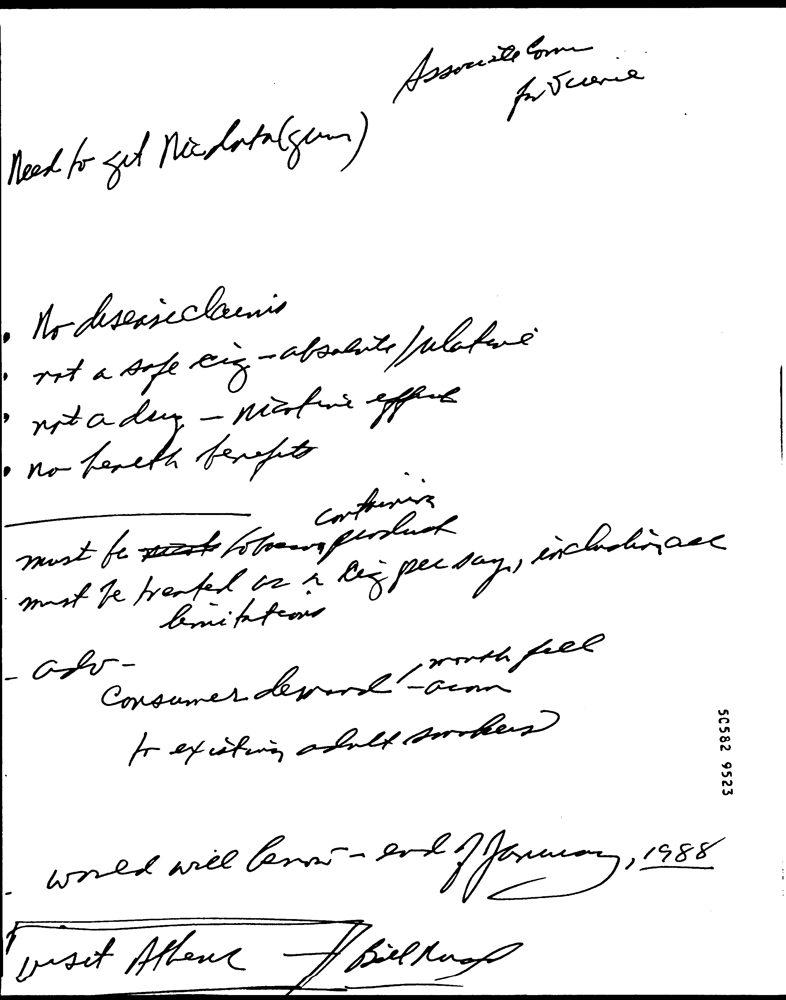 Associate Comm
for
Need to get Nic data (gum)
• No disease claims
• not a safe cig - absolute / relative
• not a drug - nicotine effect
• no health benefits
containing
must be tobacco product
must be treated as a cig per say, including all
limitations
- adv -
consumer demand / mouth feel
- aroma
to existing adult smokers
- world will know - end of January, 1988
visit Athens - Bill
50582 9523